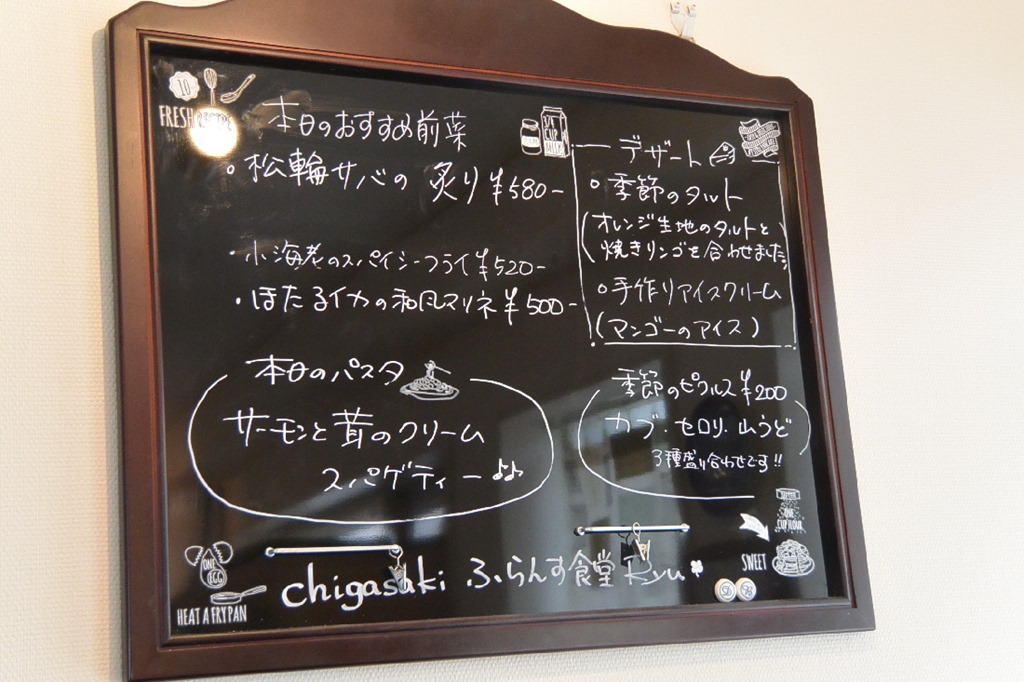 10
FRESH RECIPE
本日のおすすめ前菜
・松輪サバの炙り ¥580-
・小海老のスパイシーフライ ¥520-
・ほたるイカの和風マリネ ¥500-
3/4 CUP MILK
デザート
・季節のタルト
(オレンジ生地のタルトと
焼きリンゴを合わせました)
・手作りアイスクリーム
(マンゴーのアイス)
本日のパスタ
サーモンと茸のクリーム
スパゲティー♪♪
季節のピクルス ¥200
カブ・セロリ・山うど
3種盛り合わせです!!
ONE
CUP FLOUR
SWEET
ONE
EGG
HEAT A FRY PAN
chigasaki ふらんす食堂 Kyu